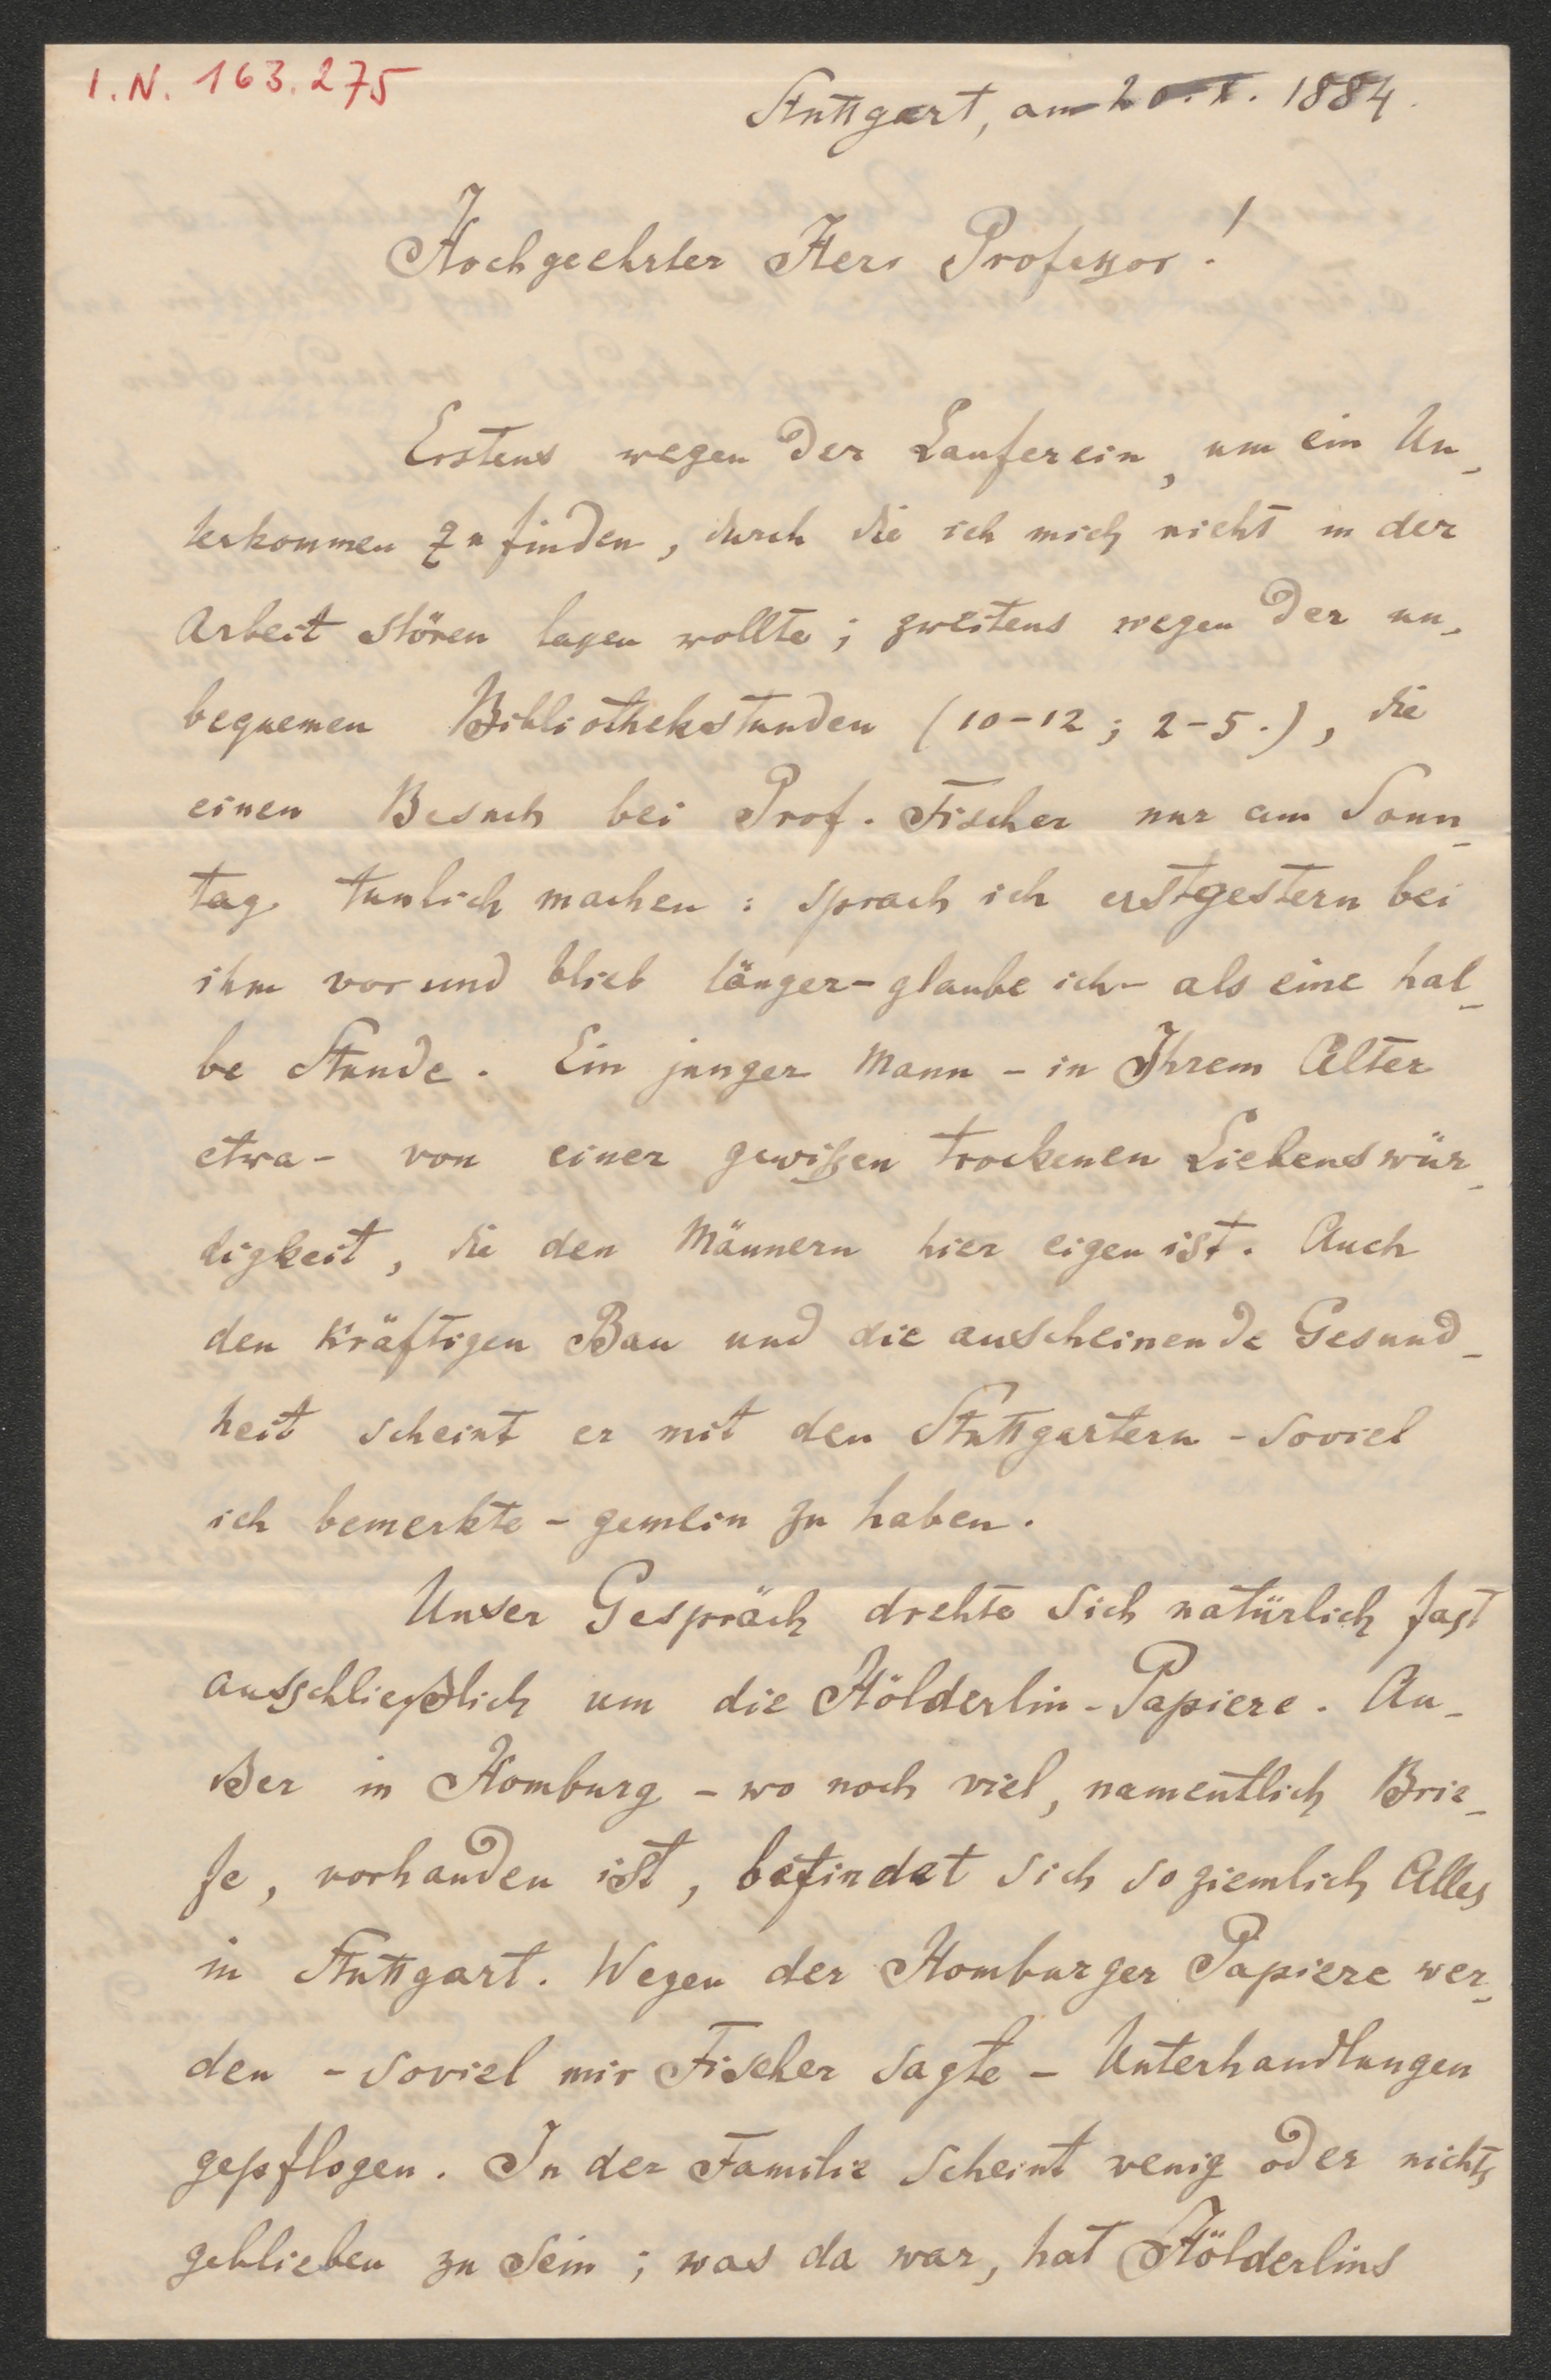 I.N. 163.275
Stuttgart, am 20. X. 1884.
Hochgeehrter Herr Professor!
Erstens wegen der Lauferein, um ein Un-
terkommen zu finden, durch die ich mich nicht in der
Arbeit stören lassen wollte; zweitens wegen der un-
bequemen Bibliothekstunden (10-12; 2-5.), die
einen Besuch bei Prof. Fischer nur am Sonn-
tag tunlich machen: sprach ich erstgestern bei
ihm vor und blieb länger - glaube ich - als eine hal-
be Stunde. Ein junger Mann - in Ihrem Alter
etwa - von einer gewißen trockenen Liebenswür-
digkeit, die den Männern hier eigen ist. Auch
den kräftigen Bau und die anscheinende Gesund-
heit scheint er mit den Stuttgartern - soviel
ich bemerkte - gemein zu haben.
Unser Gespräch drehte sich natürlich fast
ausschließlich um die Hölderlin-Papiere. Au-
ßer in Homburg - wo noch viel, namentlich Brie-
fe, vorhanden ist, befindet sich so ziemlich Alles
in Stuttgart. Wegen der Homburger Papiere wer-
den - soviel mir Fischer sagte - Unterhandlungen
gepflogen. In der Familie scheint wenig oder nichts
geblieben zu sein; was da war, hat Hölderlins